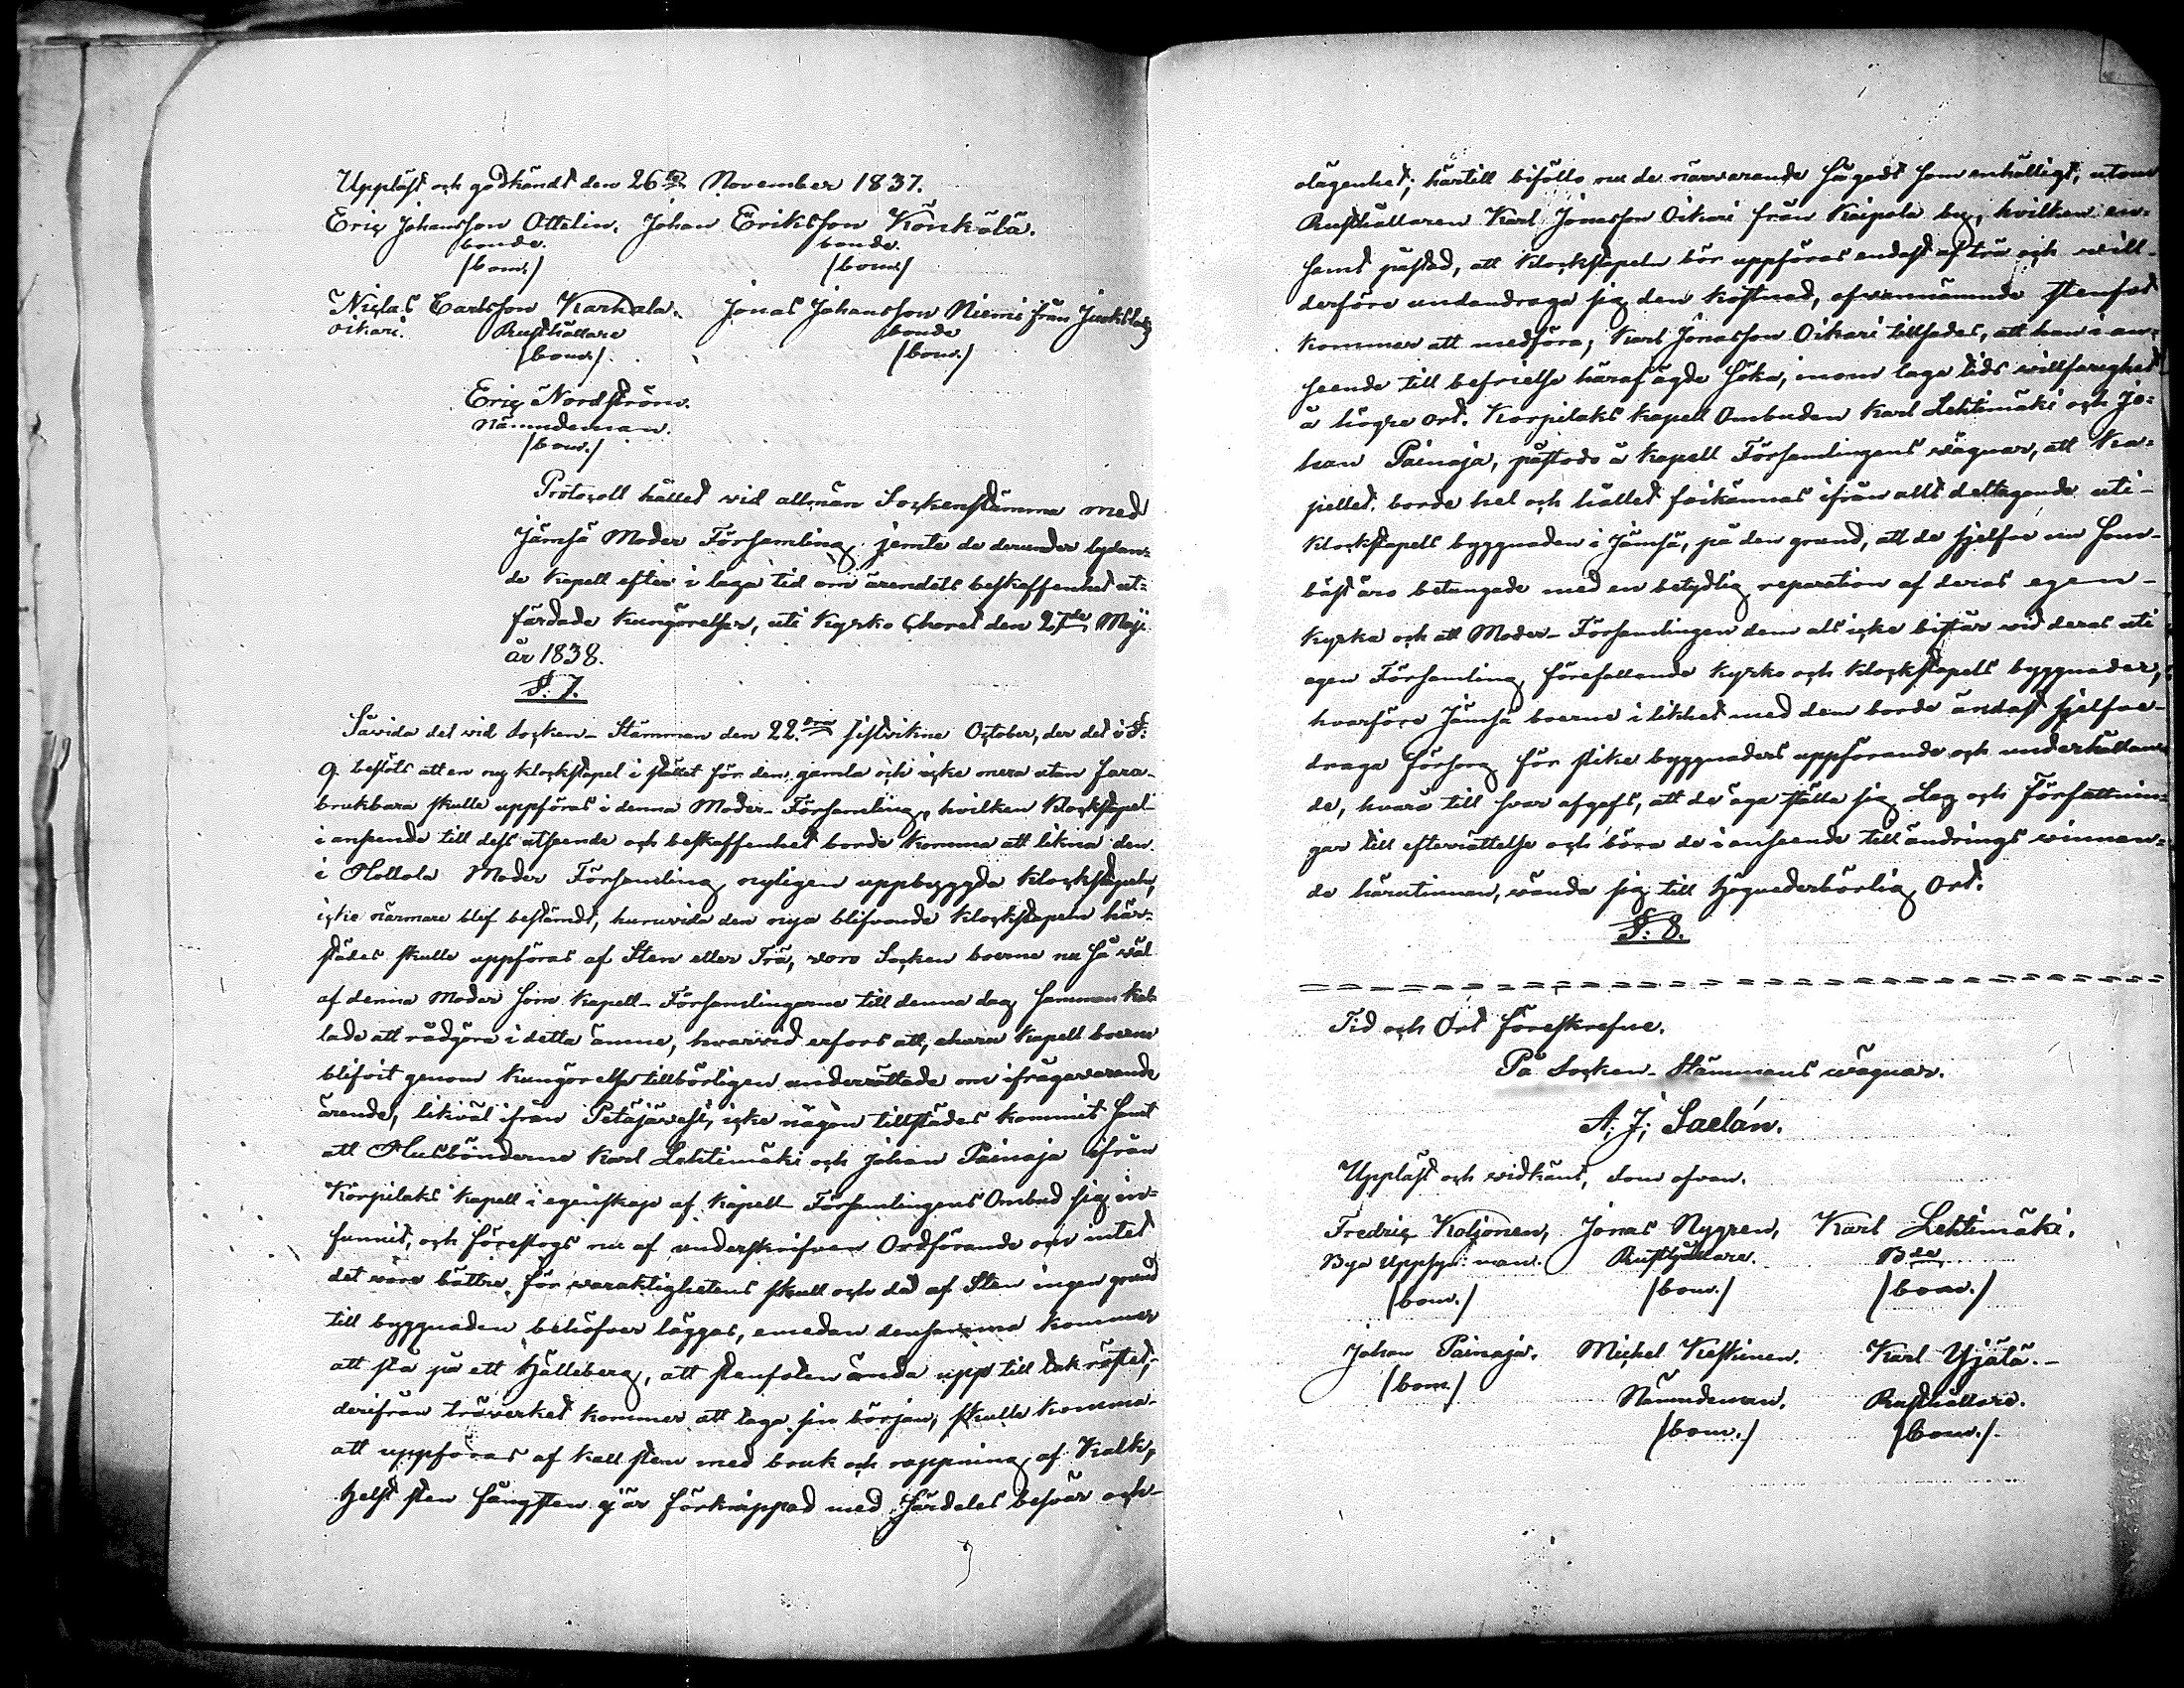 Uppläst och godkändt den 26te November 1837.
Eric Johansson Ottelin. Johan Eriksson Könkölä.
bonde. bonde.
/bom./ /bom./
Niclas Carlsson Karhala. Jonas Johansson Niemi från Juoksla
oikari. Rusthållare bonde
/bom./ /bom./
Eric Nordström.
Nämndeman.
/bom./
Protocoll hållet vid allmän Sockenstämma med
Jämsä Moder Församling jemte de derunder lydan-
de Kapell efter i laga tid om ärendets beskaffenhet ut-
färdade kungörelser, uti Kyrko Choret den 27de Maji
år 1838.
§: 7.
Såvida det vid Socken-Stämman den 22dra sistvikne October, der det i §:
9 beslöts att en ny klockstapel i stället för den gamla och icke mera utan fara
brukbara skulle uppföras i denna Moder-Församling, hvilken Klockstapel
i anseende till dess utseende och beskaffenhet borde komma att likna den
i Hollola Moder Församling nyligen uppbyggda klockstapeln,
icke närmare blef bestämdt, huruvida den nya blifvande klockstapeln här-
städes skulle uppföras af Sten eller Trä, voro Socken boerne nu så väl
af denna Moder som Kapell-Församlingarne till denna dag samman kal-
lade att rådgöra i detta ämne, hvarvid erfors att, ehuru Kapell boerne
blifvit genom kungörelse tillbörligen underrättade om ifrågavarande
ärende, likväl ifrån Petäjävesi, icke någon tillstädes kommit samt
att Husbönderne Karl Lehtimäki och Johan Painaja ifrån
Korpilaks Kapell i egenskap af Kapell Församlingens Ombud sig in-
funnit, och föreslogs nu af underskrifven Ordförande om intet
det vore bättre för varaktighetens skull och då af Sten ingen grund
till byggnaden behöfver läggas, emedan densamma kommer
att stå på ett Hälleberg, att stenfoten ända upp till takröstet,
derifrån träverket kommer att taga sin början, skulle komma
att uppföras af kall sten med bruk och rappning af Kalk,
helst sten fångsten ej är förknippad med särdeles besvär och
olägenhet; härtill biföllo nu de närvarande så godt som enhälligt, utom
Rusthållaren Karl Jonasson Oikari från Kaipola by, hvilken en-
samt påstod, att klockstapeln bör uppföras endast af trä och will
derföre undandraga sig den kostnad, ofvannämnde stenfot
kommer att medföra; Karl Jonasson Oikari tillsades, att han i an-
seende till befrielse häraf ägde söka, inom laga tids willfarighet
å högre ort. Korpilaks Kapell Ombuden Karl Lehtimäki och Jo-
han Painaja, påstodo å Kapell Församlingens wägnar, att Ka-
pellet borde hel och hållet frikännas ifrån allt deltagande uti
Klockstapels byggnaden i Jämsä, på den grund, att de sjelfve nu som
bäst äro betungade med en betydlig reparation af deras egen
Kyrka och att Moder-Församlingen dem als icke bistår vid deras uti
egen Församling förefallande Kyrko och Klockstapels byggnader,
hvarföre Jämsä boerne i likhet med dem borde ändast sjelfve
draga försorg för slike byggnaders uppförande och underhållan-
de, hvarå till svar afgafs, att de äga ställa sig Lag och Författnin-
gar till efterrättelse och böra de i anseende till ändrings winnan-
de härutinnan, wända sig till högvederbörlig Ort.
§: 8.
Tid och Ort föreskrefne.
På Socken-Stämmans wägnar.
A; J; Saelán.
Uppläst och vidkänt, som ofvan.
Fredric Koljonen, Jonas Nygren, Karl Lehtimäki.
Bya Uppsyn: man. Rusthållare. Bde
/bom./ /bom./ /bom./
Johan Painaja. Michel Keskinen. Karl Yijälä.
/bom./ Nämndeman. Rusthållare.
/bom./ /bom./